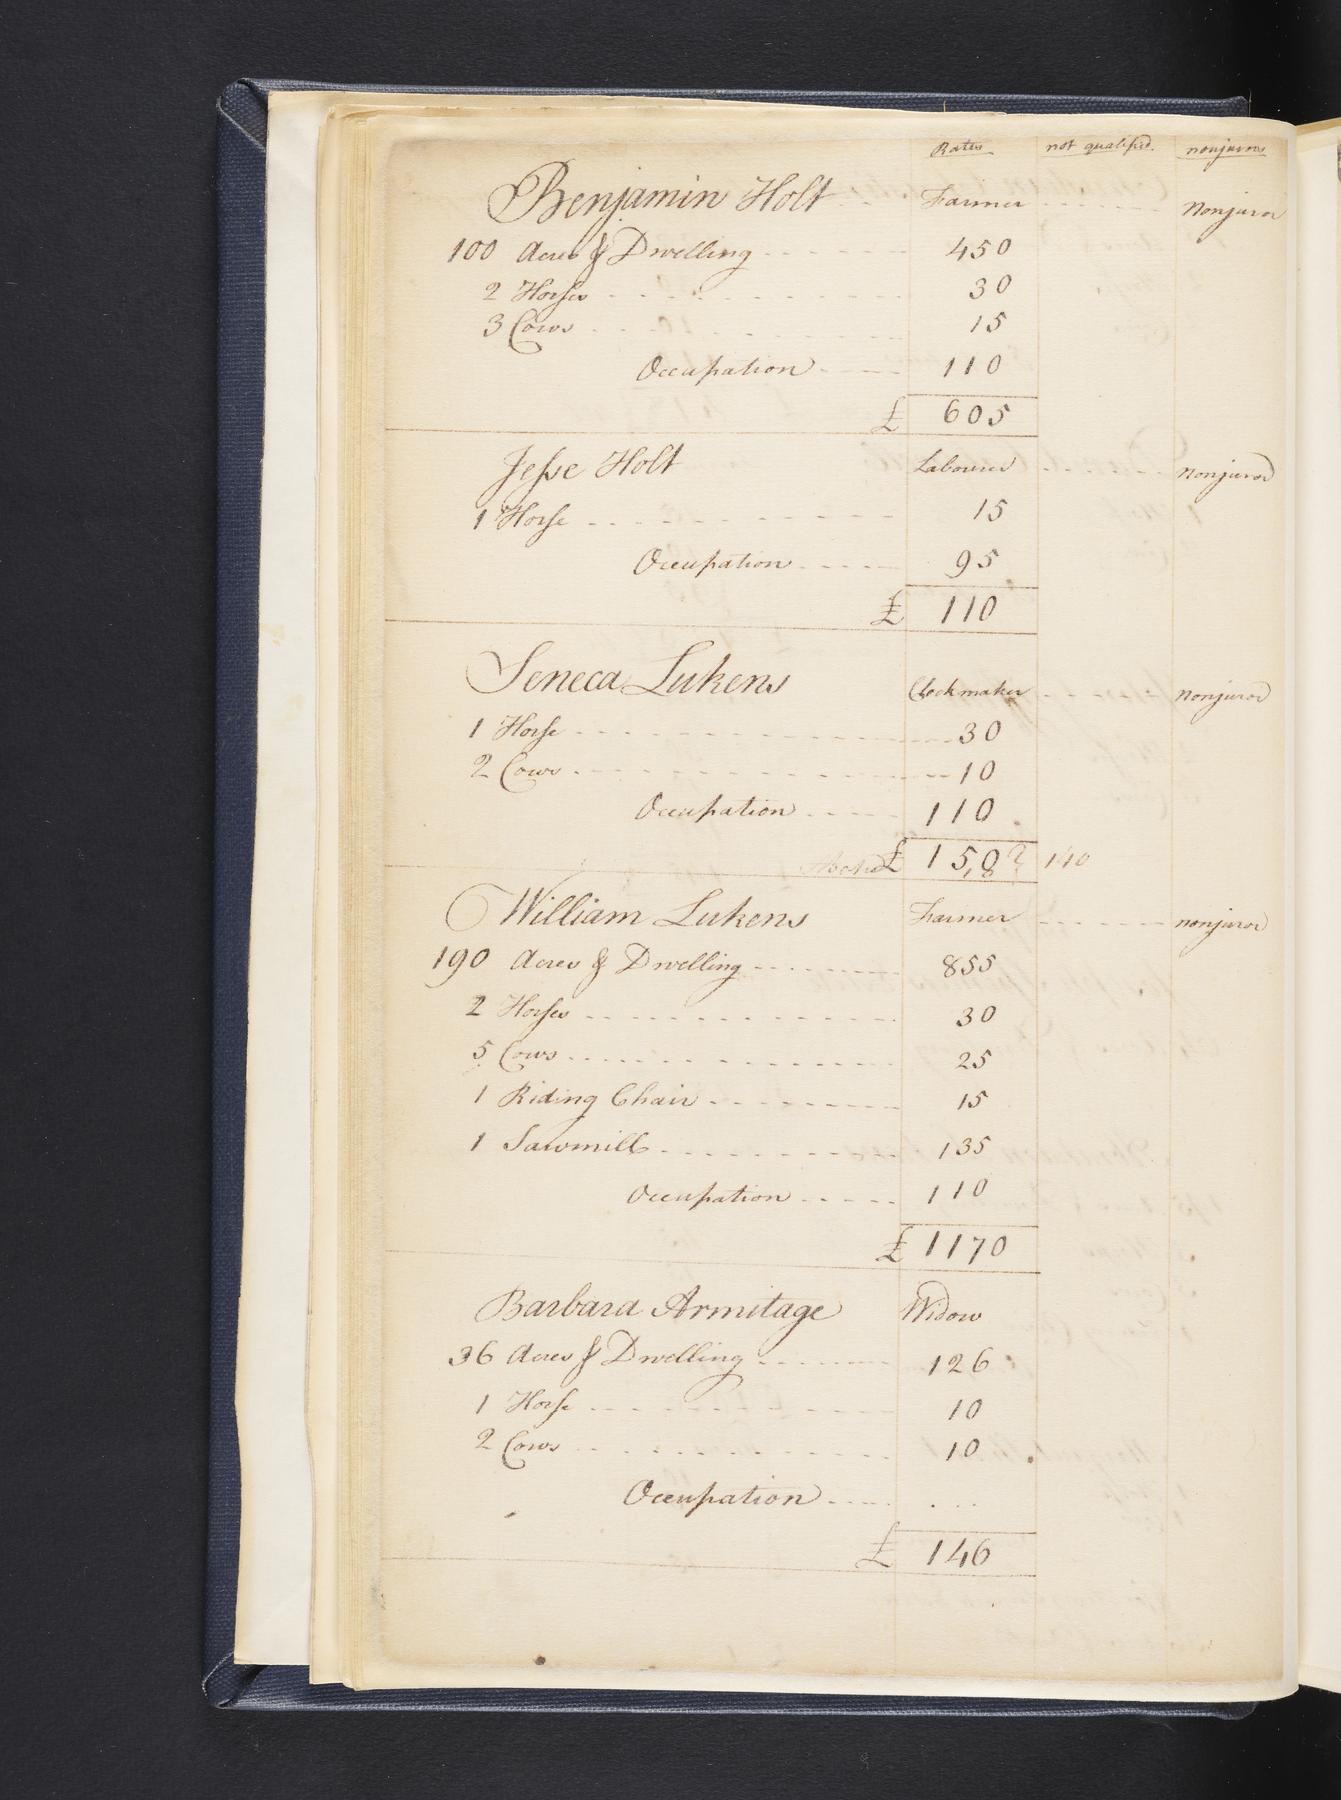 Rates not qualified. nonjurors
Benjamin Holt Farmer Nonjuror
100 Acres & Dwelling 450
2 Horses 30
3 Cows 15
Occupation 110
£ 605
Jesse Holt Labourer nonjuror
1 Horse 15
Occupation 95
£ 110
Seneca Lukens Clockmaker nonjuror
1 Horse 30
2 Cows 10
Occupation 110
£ 150 140
William Lukens Farmer nonjuror
190 Acres & Dwelling 855
2 Horses 30
5 Cows 25
1 Riding Chair 15
1 Sawmill 135
Occupation 110
£ 1170
Barbara Armitage Widow
36 Acres & Dwelling 126
1 Horse 10
2 Cows 10
Occupation ...
£ 146